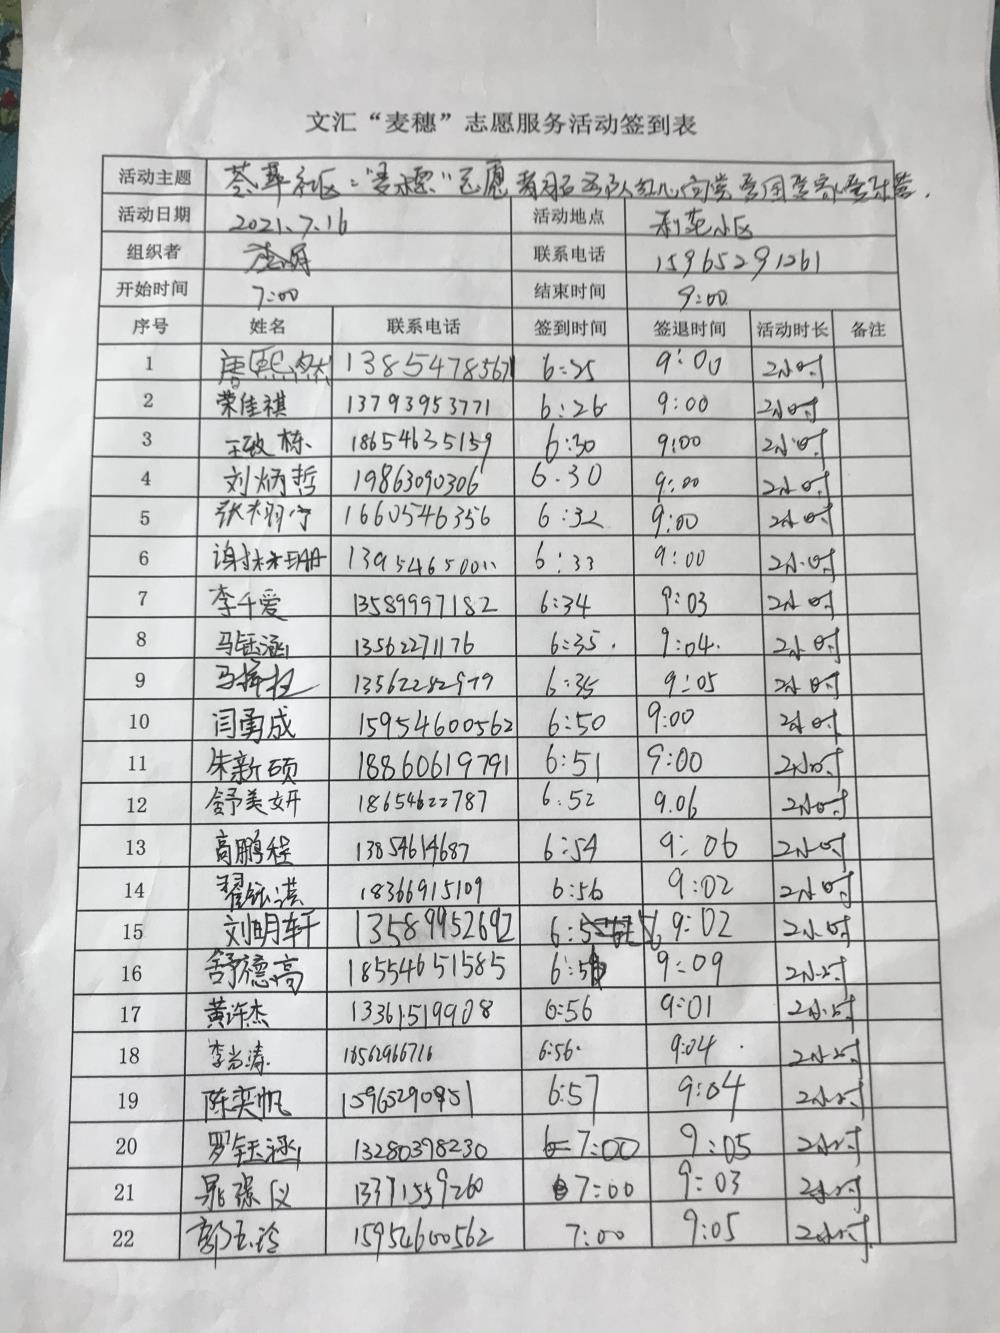 文汇“麦穗”志愿服务活动签到表
活动主题 荟萃社区：“麦穗”志愿者服务队红心向党爱国
活动日期 2021.7.16 活动地点 利苑小区
组织者 联系电话 15965291261
开始时间 7:00 结束时间 9:00
序号 姓名 联系电话 签到时间 签退时间 活动时长 备注
1 唐熙杰 13854785671 6:25 9:00 2小时
2 荣佳祺 13793953771 6:26 9:00 2小时
3 王致栋 18654635159 6:30 9:00 2小时
4 刘炳哲 19863090306 6.30 9:00 2小时
5 1660546356 6:32 9:00 2小时
6 谢林珊 13954650011 6:33 9:00 2小时
7 李千爱 13589997182 6:34 9:03 2小时
8 马钰涵 13562271176 6:35. 9:04. 2小时
9 13562282979 6:35 9:05 2小时
10 闫勇成 15954600562 6:50 9:00 2小时
11 朱新硕 18860619791 6:51 9:00 2小时
12 舒美妍 18654622787 6:52 9.06 2小时
13 高鹏程 13854614687 6:54 9:06 2小时
14 翟钰淇 18366915109 6:56 9:02 2小时
15 刘明轩 13589952692 6:5 6 9:02 2小时
16 舒德高 18554651585 6:56 9:09 2小时
17 黄许杰 13361519908 6:56 9:01 2小时
18 李尚涛 18562966716 6:56. 9:04. 2小时
19 陈奕帆 15965290851 6:57 9:04 2小时
20 罗钰涵 13280398230 7:00 9:05 2小时
21 晁张仪 13371559260 7:00 9:03 2小时
22 郭玉玲 15954600562 7:00 9:05 2小时